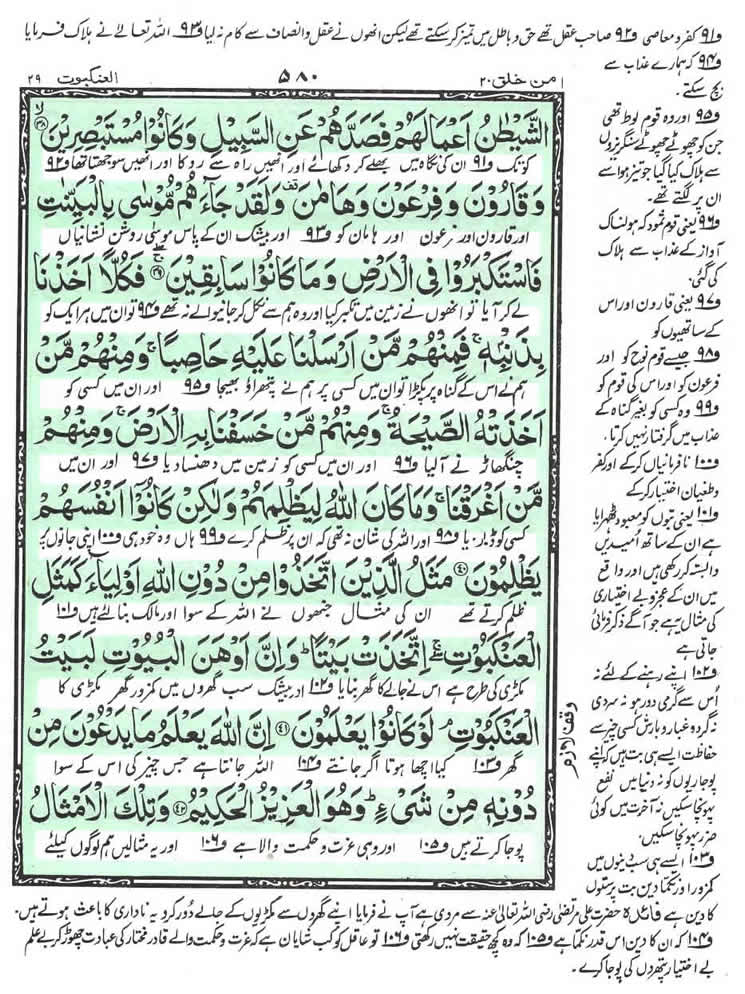 و۹۱ کفر و معاصی و۹۲ صاحب عقل تھے حق و باطل میں تمیز کر سکتے تھے لیکن انھوں نے عقل و انصاف سے کام نہ لیا و۹۳ اللہ تعالےٰ نے ہلاک فرمایا
و۹۴ کہ ہمارے عذاب سے
بچ سکتے۔
العنکبوت ۲۹
۵۸۰
امن خلق ۲۰
الشَّيْطٰنُ اَعْمَالَهُمْ فَصَدَّهُمْ عَنِ السَّبِيْلِ وَكَانُوْا مُسْتَبْصِرِيْنَ ۙ۳۸
کوتک و۹۱ ان کی نگاہ میں بھلے کر دکھائے اور انھیں راہ سے روکا اور انھیں سوجھتا تھا و۹۲
وَقَارُوْنَ وَفِرْعَوْنَ وَهَامٰنَ ۫ وَلَقَدْ جَآءَهُمْ مُّوْسٰى بِالْبَيِّنٰتِ
اور قارون اور فرعون اور ہامان کو و۹۳ اور بیشک ان کے پاس موسیٰ روشن نشانیاں
فَاسْتَكْبَرُوْا فِى الْاَرْضِ وَمَا كَانُوْا سَابِقِيْنَ ۚ۳۹ فَكُلًّا اَخَذْنَا
لے کر آیا تو انھوں نے زمین میں تکبر کیا اور وہ ہم سے نکل کر جانیوالے نہ تھے و۹۴ تو ان میں ہر ایک کو
بِذَنْۢبِهٖ ۚ فَمِنْهُمْ مَّنْ اَرْسَلْنَا عَلَيْهِ حَاصِبًا ۚ وَمِنْهُمْ مَّنْ
ہم نے اس کے گناہ پر پکڑا تو ان میں کسی پر ہم نے پتھراؤ بھیجا و۹۵ اور ان میں کسی کو
اَخَذَتْهُ الصَّيْحَةُ ۚ وَمِنْهُمْ مَّنْ خَسَفْنَا بِهِ الْاَرْضَ ۚ وَمِنْهُمْ
چنگھاڑ نے آلیا و۹۶ اور ان میں کسی کو زمین میں دھنسا دیا و۹۷ اور ان میں
مَّنْ اَغْرَقْنَا ۚ وَمَا كَانَ اللّٰهُ لِيَظْلِمَهُمْ وَلٰكِنْ كَانُوْٓا اَنْفُسَهُمْ
کسی کو ڈبو دیا و۹۸ اور اللہ کی شان نہ تھی کہ ان پر ظلم کرے و۹۹ ہاں وہ خود ہی و۱۰۰ اپنی جانوں پر
يَظْلِمُوْنَ ۴۰ مَثَلُ الَّذِيْنَ اتَّخَذُوْا مِنْ دُوْنِ اللّٰهِ اَوْلِيَآءَ كَمَثَلِ
ظلم کرتے تھے ان کی مثال جنھوں نے اللہ کے سوا اور مالک بنا لئے ہیں و۱۰۱
الْعَنْكَبُوْتِ ۖۚ اِتَّخَذَتْ بَيْتًا ؕ وَاِنَّ اَوْهَنَ الْبُيُوْتِ لَبَيْتُ
مکڑی کی طرح ہے اس نے جالے کا گھر بنایا و۱۰۲ اور بیشک سب گھروں میں کمزور گھر مکڑی کا
الْعَنْكَبُوْتِ ۘ لَوْ كَانُوْا يَعْلَمُوْنَ ۴۱ اِنَّ اللّٰهَ يَعْلَمُ مَا يَدْعُوْنَ مِنْ
گھر و۱۰۳ کیا اچھا ہوتا اگر جانتے و۱۰۴ اللہ جانتا ہے جس چیز کی اس کے سوا
دُوْنِهٖ مِنْ شَىْءٍ ؕ وَهُوَ الْعَزِيْزُ الْحَكِيْمُ ۴۲ وَتِلْكَ الْاَمْثَالُ
پوجا کرتے ہیں و۱۰۵ اور وہی عزت و حکمت والا ہے و۱۰۶ اور یہ مثالیں ہم لوگوں کیلئے
وقف لازم
و۹۵ اور وہ قوم لوط تھی
جن کو چھوٹے چھوٹے سنگریزوں
سے ہلاک کیا گیا جو تیز ہوا سے
ان پر لگتے تھے۔
و۹۶ یعنی قوم ثمود کہ ہولناک
آواز کے عذاب سے ہلاک
کی گئی۔
و۹۷ یعنی قارون اور اس
کے ساتھیوں کو
و۹۸ جیسے قوم نوح کو اور
فرعون کو اور اس کی قوم کو
و۹۹ وہ کسی کو بغیر گناہ کے
عذاب میں گرفتار نہیں کرتا۔
و۱۰۰ نافرمانیاں کر کے اور کفر
و طغیان اختیار کر کے
و۱۰۱ یعنی بتوں کو معبود ٹھہرایا
ہے ان کے ساتھ امیدیں
وابستہ کر رکھی ہیں اور واقع
میں ان کے عجز و بے اختیاری
کی مثال یہ ہے جو آگے ذکر فرمائی
جاتی ہے
و۱۰۲ اپنے رہنے کے لئے نہ
اس سے گرمی دور ہو نہ سردی
نہ گرد و غبار و بارش کسی چیز سے
حفاظت ایسے ہی بت ہیں کہ اپنے
پوجاریوں کو نہ دنیا میں نفع
پہونچا سکیں نہ آخرت میں کوئی
ضرر پہونچا سکیں۔
و۱۰۳ ایسے ہی سب دینوں میں
کمزور اور نکما دین بت پرستوں
کا دین ہے فائدہ حضرت علی مرتضیٰ رضی اللہ تعالیٰ عنہ سے مروی ہے آپ نے فرمایا اپنے گھروں سے مکڑیوں کے جالے دور کرو یہ ناداری کا باعث ہوتے ہیں۔
و۱۰۴ کہ ان کا دین اس قدر نکما ہے و۱۰۵ کہ وہ کچھ حقیقت نہیں رکھتی و۱۰۶ تو عاقل کو کب شایان ہے کہ عزت و حکمت والے قادر مختار کی عبادت چھوڑ کر بے علم
بے اختیار پتھروں کی پوجا کرے۔